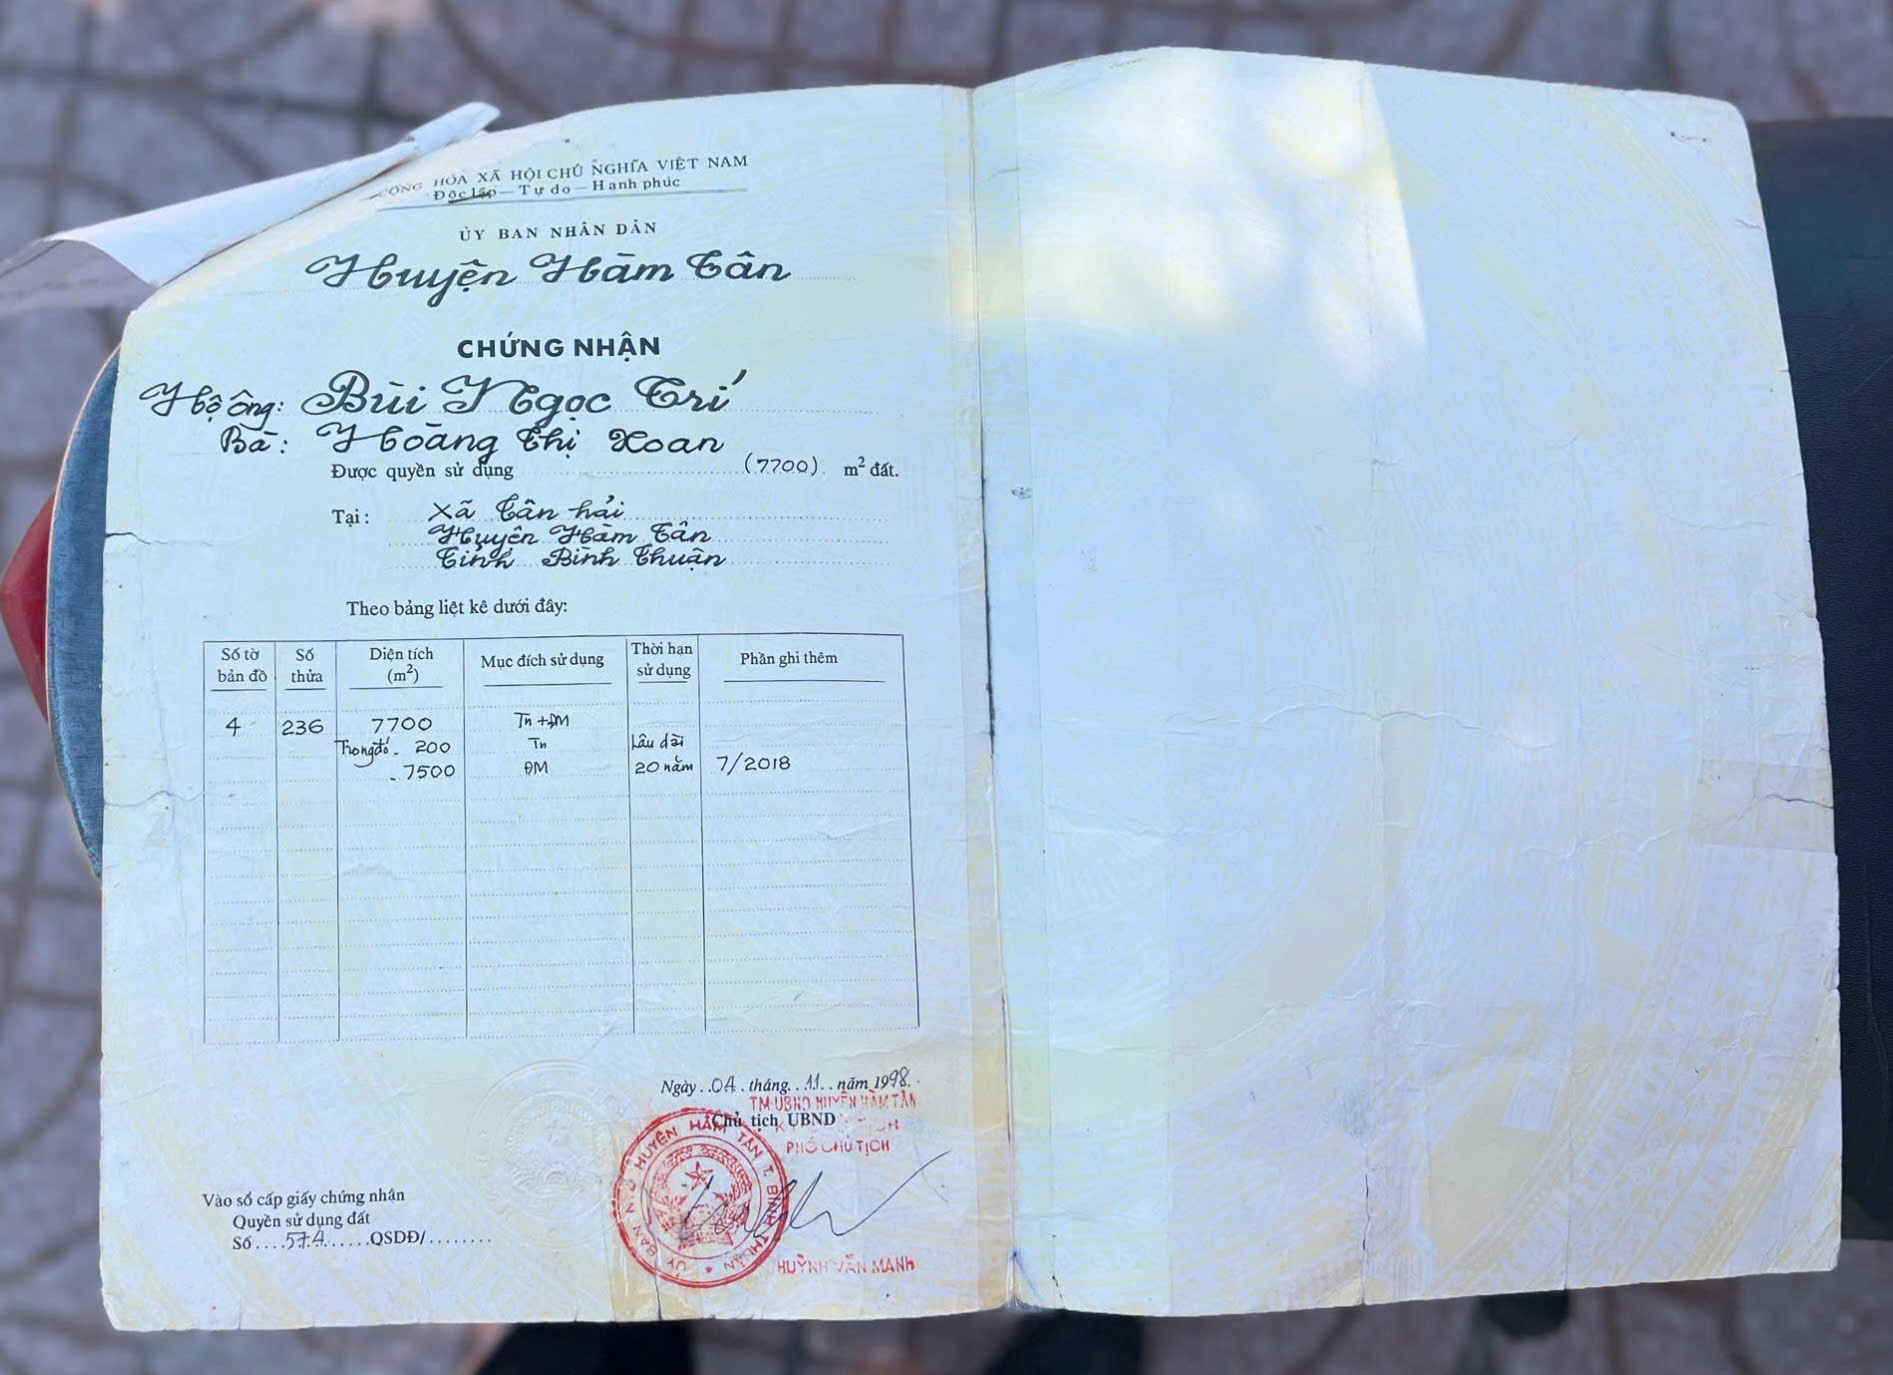 CỘNG HÒA XÃ HỘI CHỦ NGHĨA VIỆT NAM
Độc lập - Tự do - Hạnh phúc
ỦY BAN NHÂN DÂN
Huyện Hàm Tân
CHỨNG NHẬN
Hộ ông: Bùi Ngọc Trí
Bà: Hoàng Thị Xoan
Được quyền sử dụng (7700) m² đất.
Tại: Xã Tân hải
Huyện Hàm Tân
Tỉnh Bình Thuận
Theo bảng liệt kê dưới đây:
Số tờ bản đồ | Số thửa | Diện tích (m²) | Mục đích sử dụng | Thời hạn sử dụng | Phần ghi thêm
4 236 7700 Tn+ĐM
Trong đó - 200 Tn Lâu dài
- 7500 ĐM 20 năm 7/2018
Ngày..04.tháng..11..năm 1998.
TM.UBND HUYỆN HÀM TÂN
Chủ tịch UBND
PHÓ CHỦ TỊCH
ỦY BAN N.D HUYỆN HÀM TÂN T. BÌNH THUẬN
Vào sổ cấp giấy chứng nhận
Quyền sử dụng đất
Số....574......QSDĐ/........
HUỲNH VĂN MANH